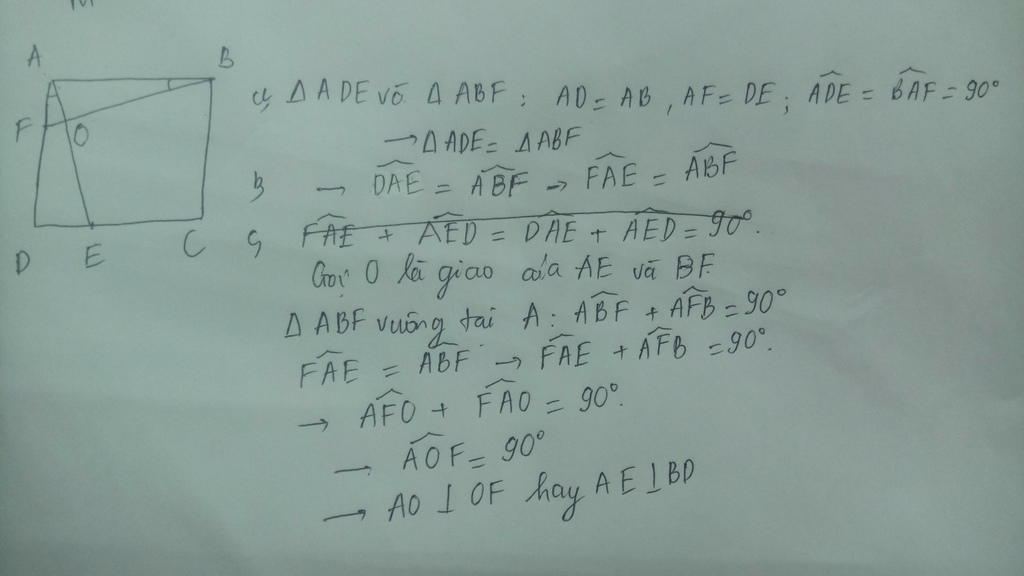 A B
F O
D E C
a, Δ ADE và Δ ABF : AD = AB , AF = DE ; \widehat{ADE} = \widehat{BAF} = 90°
→ Δ ADE = Δ ABF
b → \widehat{DAE} = \widehat{ABF} → \widehat{FAE} = \widehat{ABF}
\widehat{FAE} + \widehat{AED} = \widehat{DAE} + \widehat{AED} = 90°.
Gọi O là giao của AE và BF.
Δ ABF vuông tại A : \widehat{ABF} + \widehat{AFB} = 90°
\widehat{FAE} = \widehat{ABF} → \widehat{FAE} + \widehat{AFB} = 90°.
→ \widehat{AFO} + \widehat{FAO} = 90°.
→ \widehat{AOF} = 90°
→ AO ⊥ OF hay AE ⊥ BD